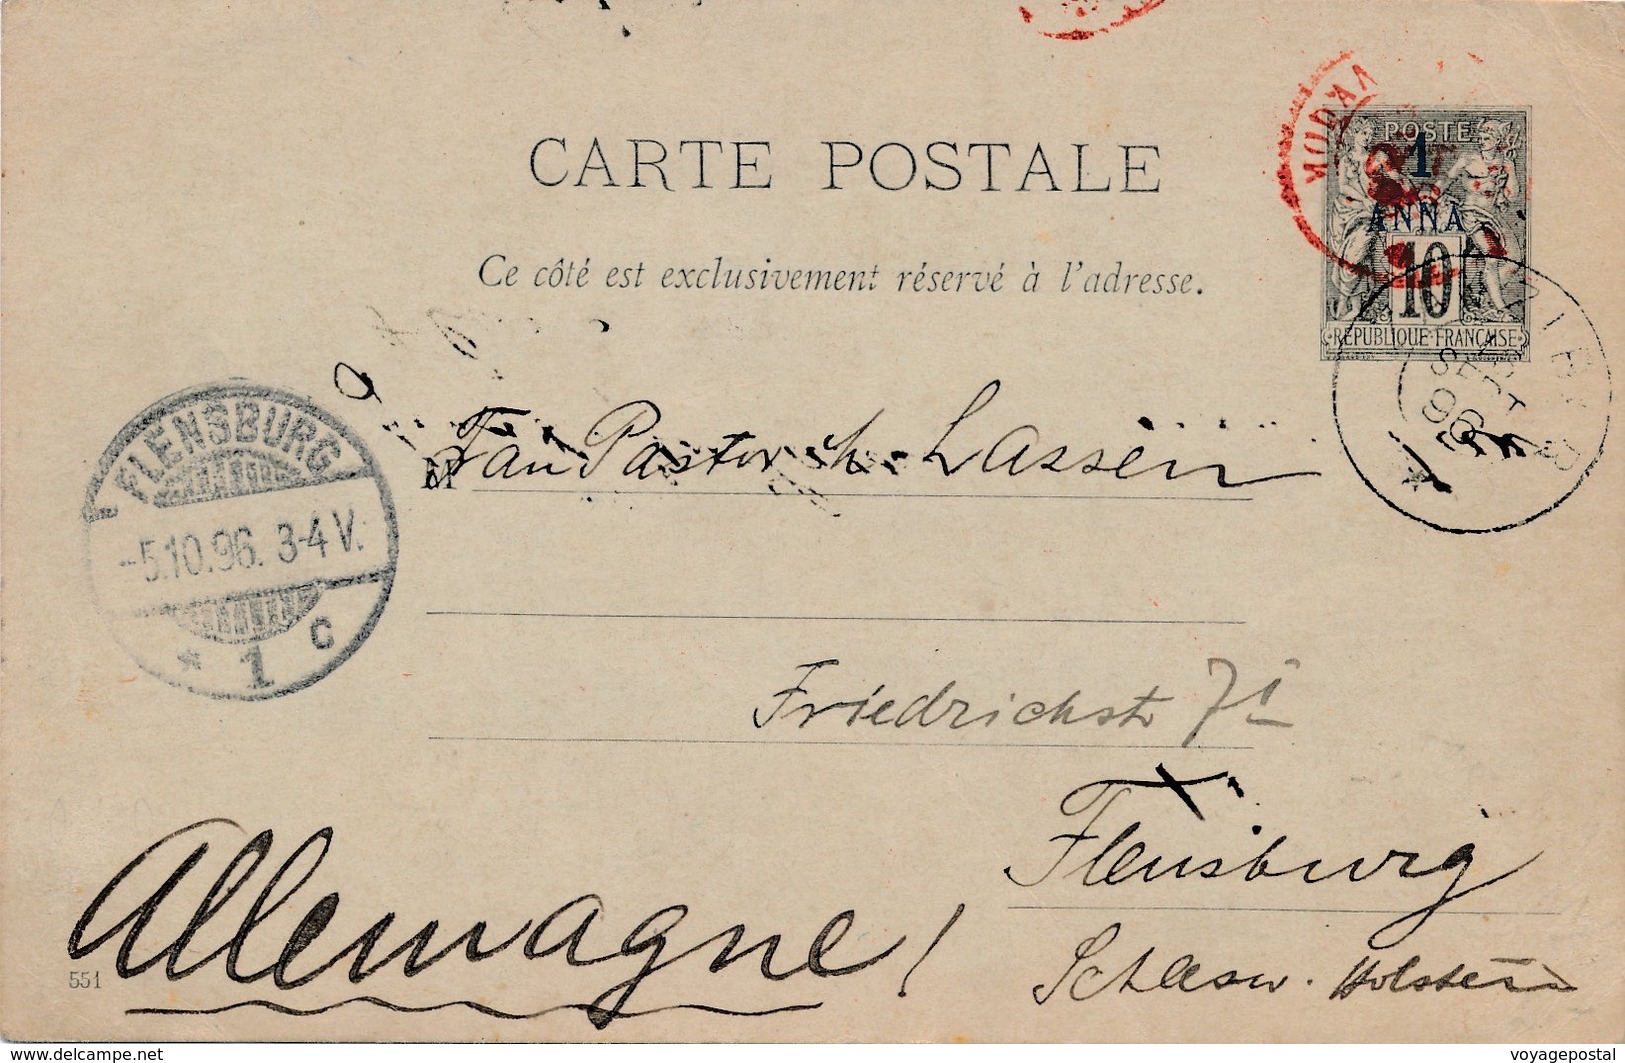 CARTE POSTALE
Ce côté est exclusivement réservé à l'adresse.
POSTE
1
ANNA
10
RÉPUBLIQUE FRANÇAISE
SEPT
96
FLENSBURG
-5.10.96. 3-4 V.
* 1 c
M
Frau Pastor Lassen
Friedrichstr 71
Flensburg
Schlesw. Holstein
Allemagne!
551
voyagepostal